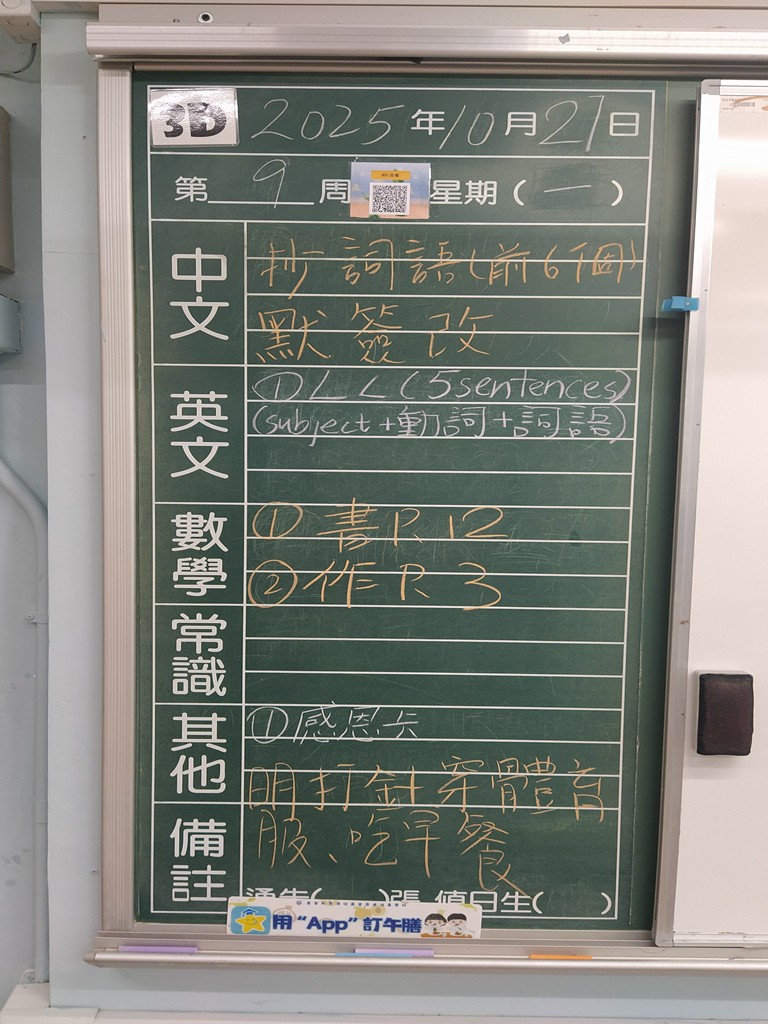 3D 2025年10月27日
第9周 星期(一)
中文 抄詞語(前6個)
默簽改
英文 ①LL(5sentences)
(subject+動詞+詞語)
數學 ①書P.12
②作P.3
常識
其他 ①感恩卡
明打針穿體育
備註 服、吃早餐
通告( )張 值日生( )
用“App”訂午膳